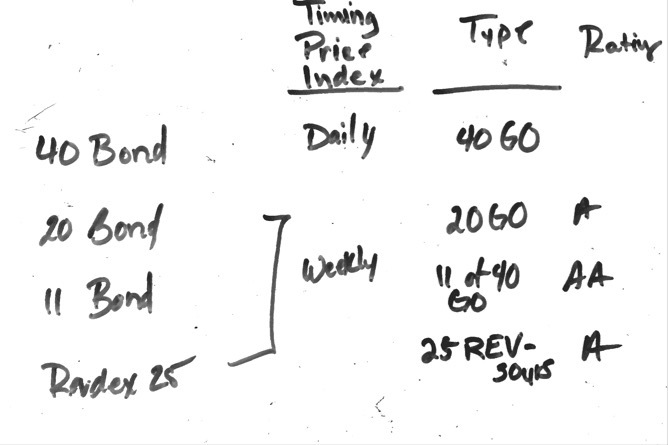 Timing
Price
Index
Type
Rating
40 Bond
Daily
40 GO
20 Bond
20 GO
A
11 Bond
Weekly
11 of 40
GO
AA
Revdex 25
25 REV-
30yrs
A